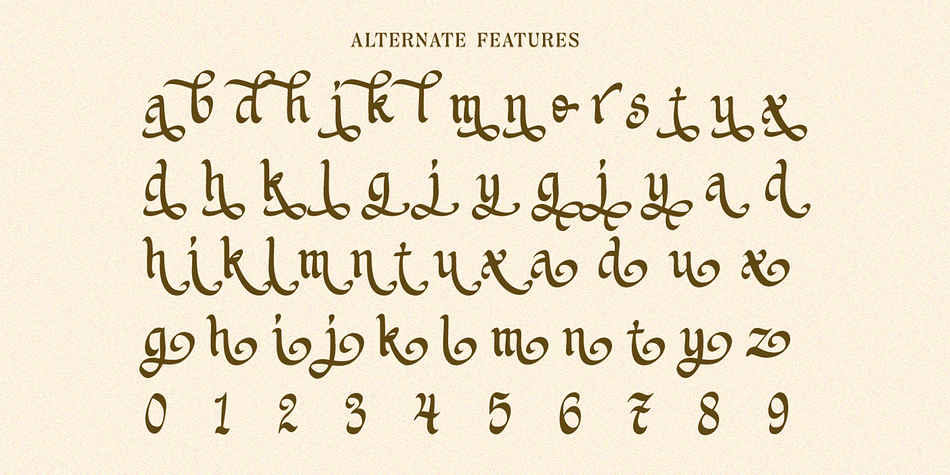 ALTERNATE FEATURES
a b d h j k l m n o r s t u x
d h k l g j y g j y a d
h i k l m n t u x a d u x
g h i j k l m n t y z
0 1 2 3 4 5 6 7 8 9